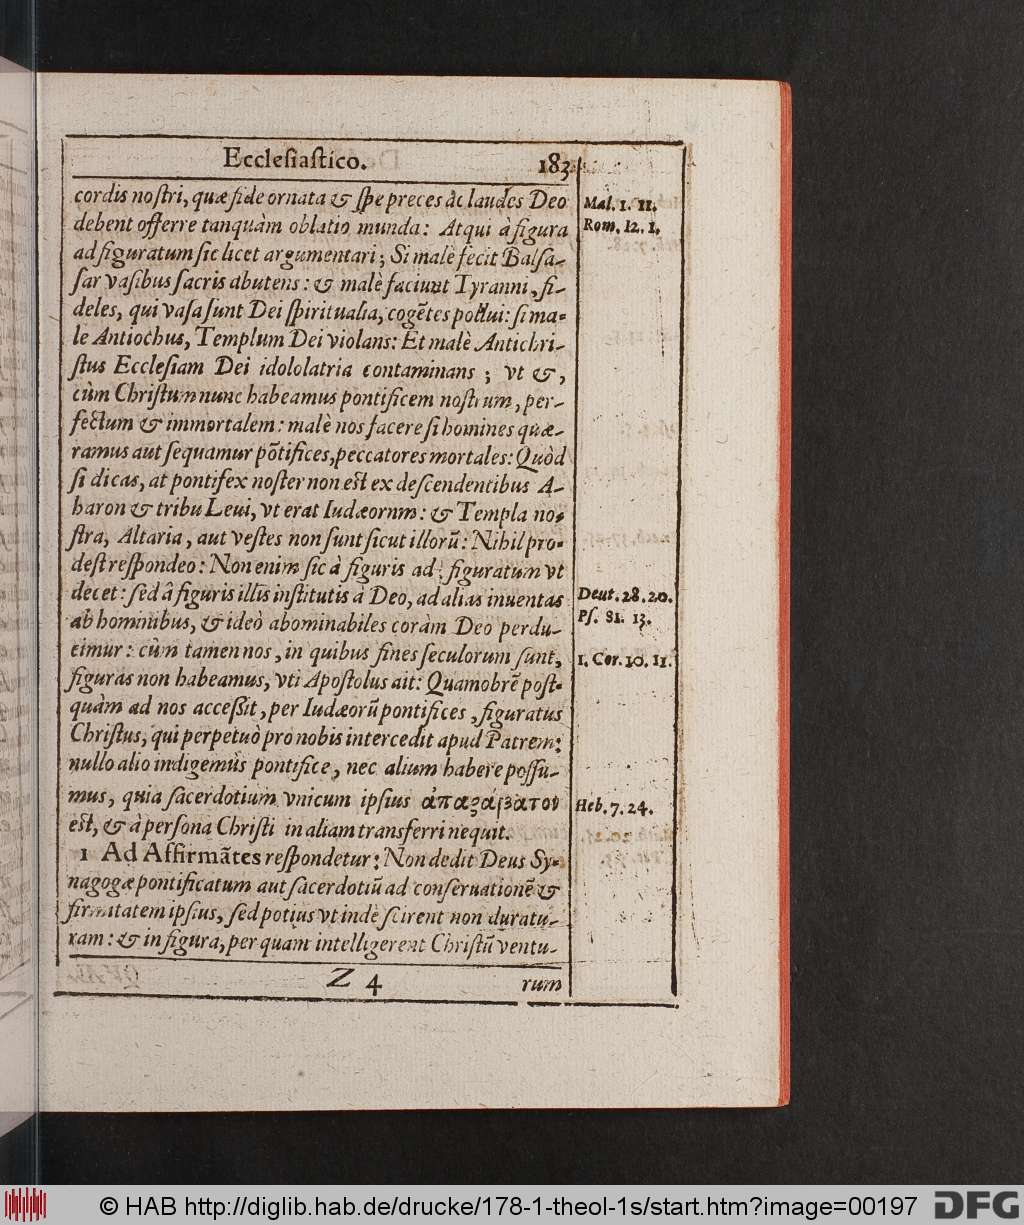 Ecclesiastico. 183
cordis nostri, quæ fide ornata & spe preces ac laudes Deo
debent offerre tanquàm oblatio munda: Atqui à figura
ad figuratum sic licet argumentari; Si malè fecit Balsa-
sar vasibus sacris abutens: & malè faciunt Tyranni, fi-
deles, qui vasa sunt Dei spiritualia, cogẽtes pollui: si ma-
le Antiochus, Templum Dei violans: Et malè Antichri-
stus Ecclesiam Dei idololatria contaminans; vt &,
cùm Christum nunc habeamus pontificem nostrum, per-
fectum & immortalem: malè nos facere si homines quæ-
ramus aut sequamur põtifices, peccatores mortales: Quòd
si dicas, at pontifex noster non est ex descendentibus A-
haron & tribu Leui, vt erat Iudæornm: & Templa no-
stra, Altaria, aut vestes non sunt sicut illorũ: Nihil pro-
dest respondeo: Non enim sic à figuris ad figuratum vt
decet: sed â figuris illis institutis à Deo, ad alias inuentas
ab hominibus, & ideò abominabiles coràm Deo perdu-
eimur: cùm tamen nos, in quibus fines seculorum sunt,
figuras non habeamus, vti Apostolus ait: Quamobrẽ post-
quàm ad nos accessit, per Iudæorũ pontifices, figuratus
Christus, qui perpetuò pro nobis intercedit apud Patrem:
nullo alio indigemus pontifice, nec alium habere possu-
mus, quia sacerdotium vnicum ipsius ἀπαράβατον
est, & à persona Christi in aliam transferri nequit.
1 Ad Affirmãtes respondetur: Non dedit Deus Sy-
nagogæ pontificatum aut sacerdotiũ ad conseruationẽ &
firmitatem ipsius, sed potius vt indè scirent non duratu-
ram: & in figura, per quam intelligerent Christũ ventu-
Z 4 rum
Mal. 1. 11.
Rom. 12. 1.
Deut. 28. 20.
Ps. 81. 13.
1. Cor. 10. 11.
Heb. 7. 24.
© HAB http://diglib.hab.de/drucke/178-1-theol-1s/start.htm?image=00197 DFG